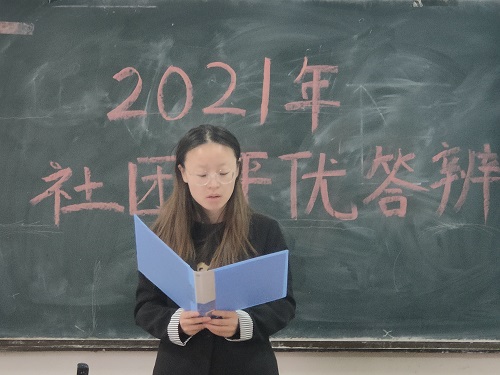 2021年
社团评优答辨